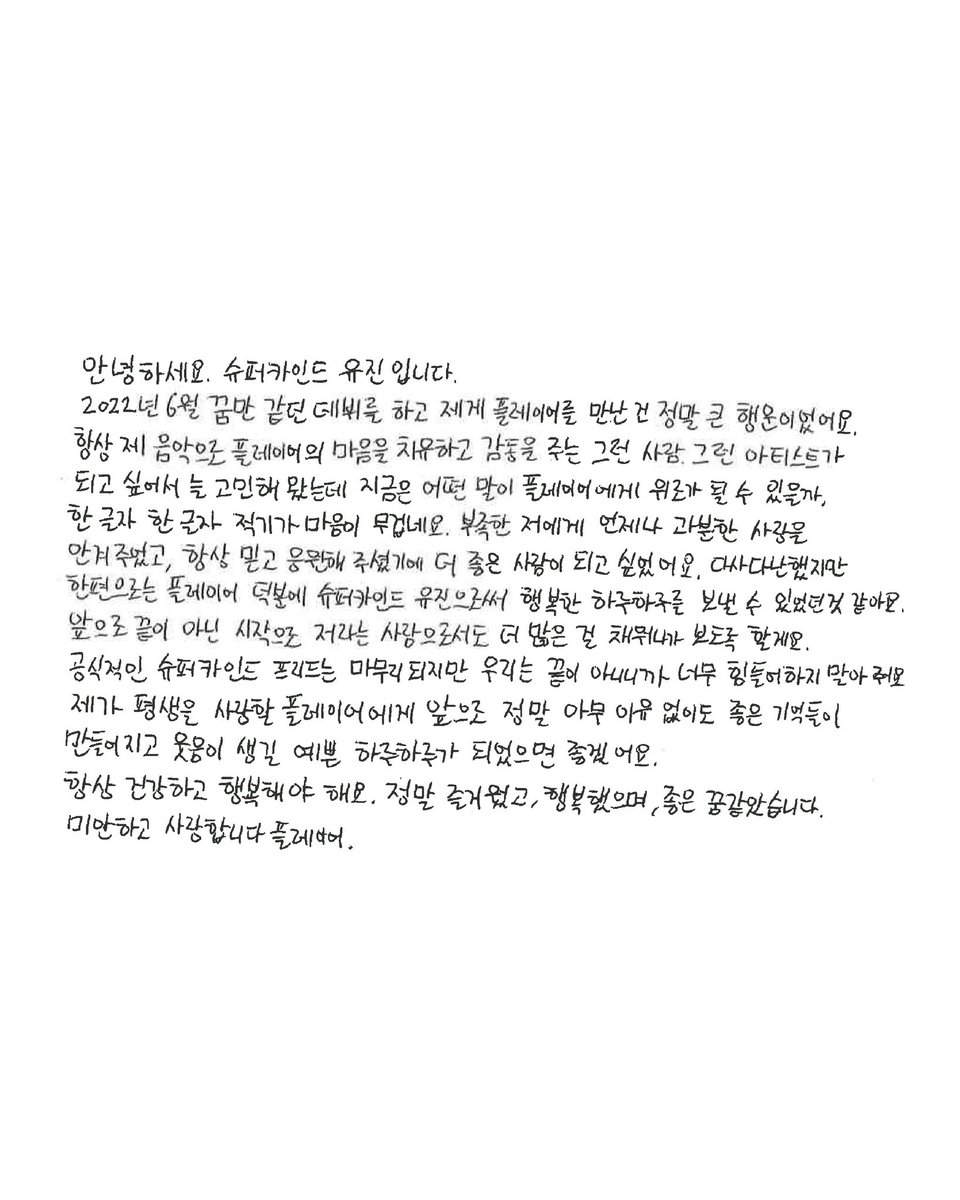 안녕하세요. 슈퍼카인드 유진입니다.
2022년 6월 꿈만 같던 데뷔를 하고 제게 플레이어를 만난 건 정말 큰 행운이었어요.
항상 제 음악으로 플레이어의 마음을 치유하고 감동을 주는 그런 사람. 그런 아티스트가
되고 싶어서 늘 고민해 왔는데 지금은 어떤 말이 플레이어에게 위로가 될 수 있을까,
한 글자 한 글자 적기가 마음이 무겁네요. 부족한 저에게 언제나 과분한 사랑을
안겨주었고, 항상 믿고 응원해 주셨기에 더 좋은 사람이 되고 싶었어요. 다사다난했지만
한편으로는 플레이어 덕분에 슈퍼카인드 유진으로써 행복한 하루하루를 보낼 수 있었던것 같아요.
앞으로 끝이 아닌 시작으로 저라는 사람으로서도 더 많은 걸 채워나가 보도록 할게요.
공식적인 슈퍼카인드 프리드는 마무리되지만 우리는 끝이 아니니까 너무 힘들어하지 말아 줘요
제가 평생을 사랑할 플레이어에게 앞으로 정말 아무 이유 없이도 좋은 기억들이
만들어지고 웃음이 생길 예쁜 하루하루가 되었으면 좋겠어요.
항상 건강하고 행복해야 해요. 정말 즐거웠고, 행복했으며, 좋은 꿈같았습니다.
미안하고 사랑합니다 플레이어.